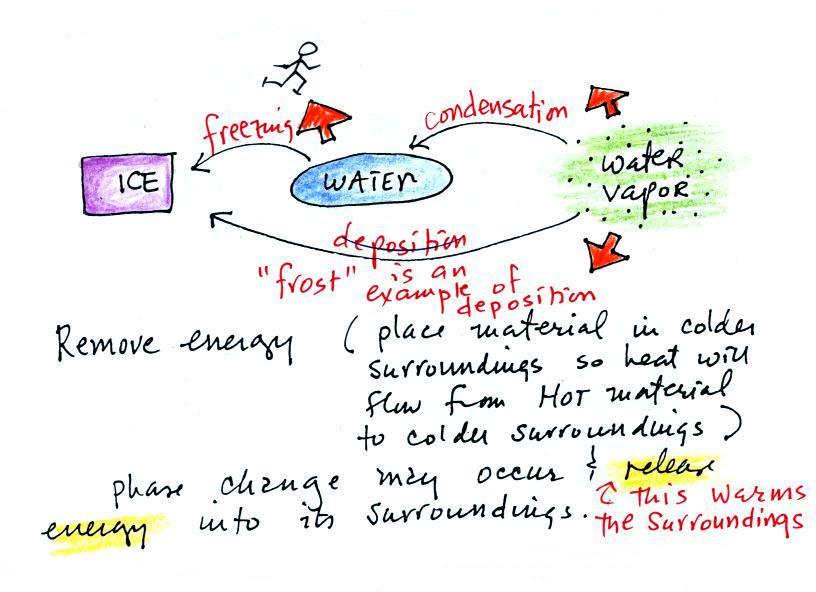 freezing
condensation
ICE
WATER
water
vapor
deposition
"frost" is an
example of
deposition
Remove energy ( place material in colder
surroundings so heat will
flow from HOT material
to colder surroundings )
phase change may occur & release
energy into its surroundings. ↑ this warms
the surroundings